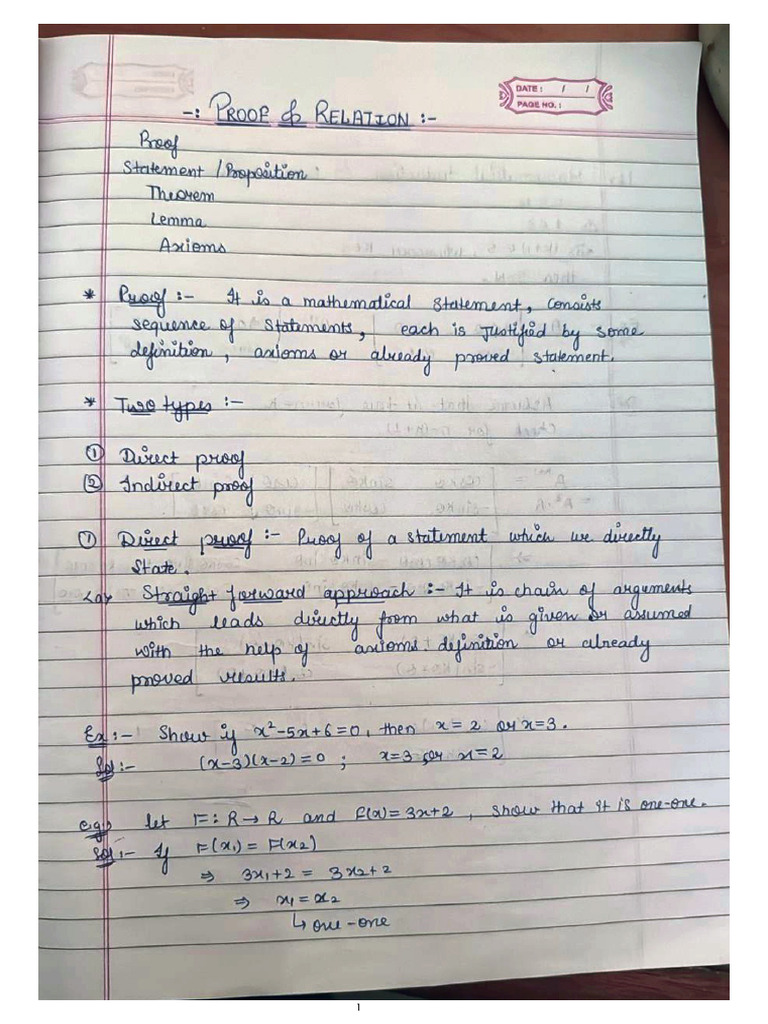 DATE : / /
PAGE NO. :
-: PROOF & RELATION :-
Proof
Statement / Proposition
Theorem
Lemma
Axioms
* Proof :- It is a mathematical statement, consists
sequence of statements, each is justified by some
definition, axioms or already proved statement.
* Two types :-
① Direct proof
② Indirect proof
① Direct proof :- Proof of a statement which we directly
state.
<a> Straight forward approach :- It is chain of arguments
which leads directly from what is given or assumed
with the help of axioms definition or already
proved results.
Ex :- Show if x²-5x+6=0, then x = 2 or x=3.
Sol :- (x-3)(x-2)=0 ; x=3 or x=2
e.g:) let F: R→R and F(x)= 3x+2, show that it is one-one.
Sol :- If F(x₁) = F(x₂)
⇒ 3x₁+2 = 3x₂+2
⇒ x₁=x₂
↳ one-one
1